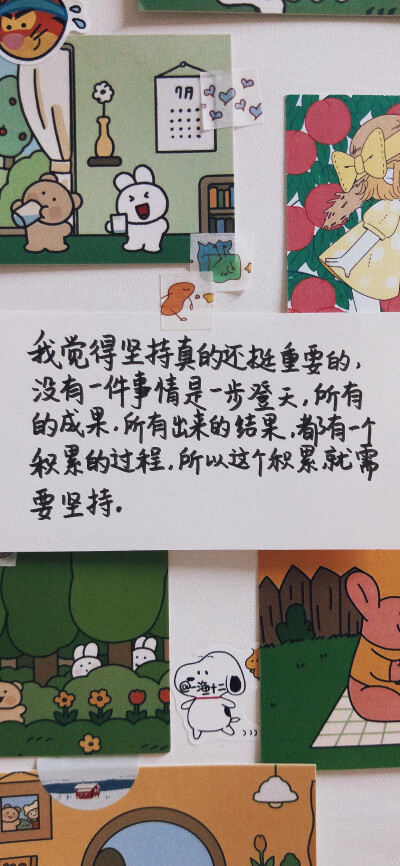 7月
我觉得坚持真的还挺重要的，
没有一件事情是一步登天，所有
的成果，所有出来的结果，都有一个
积累的过程，所以这个积累，就需
要坚持。
@一渔十二